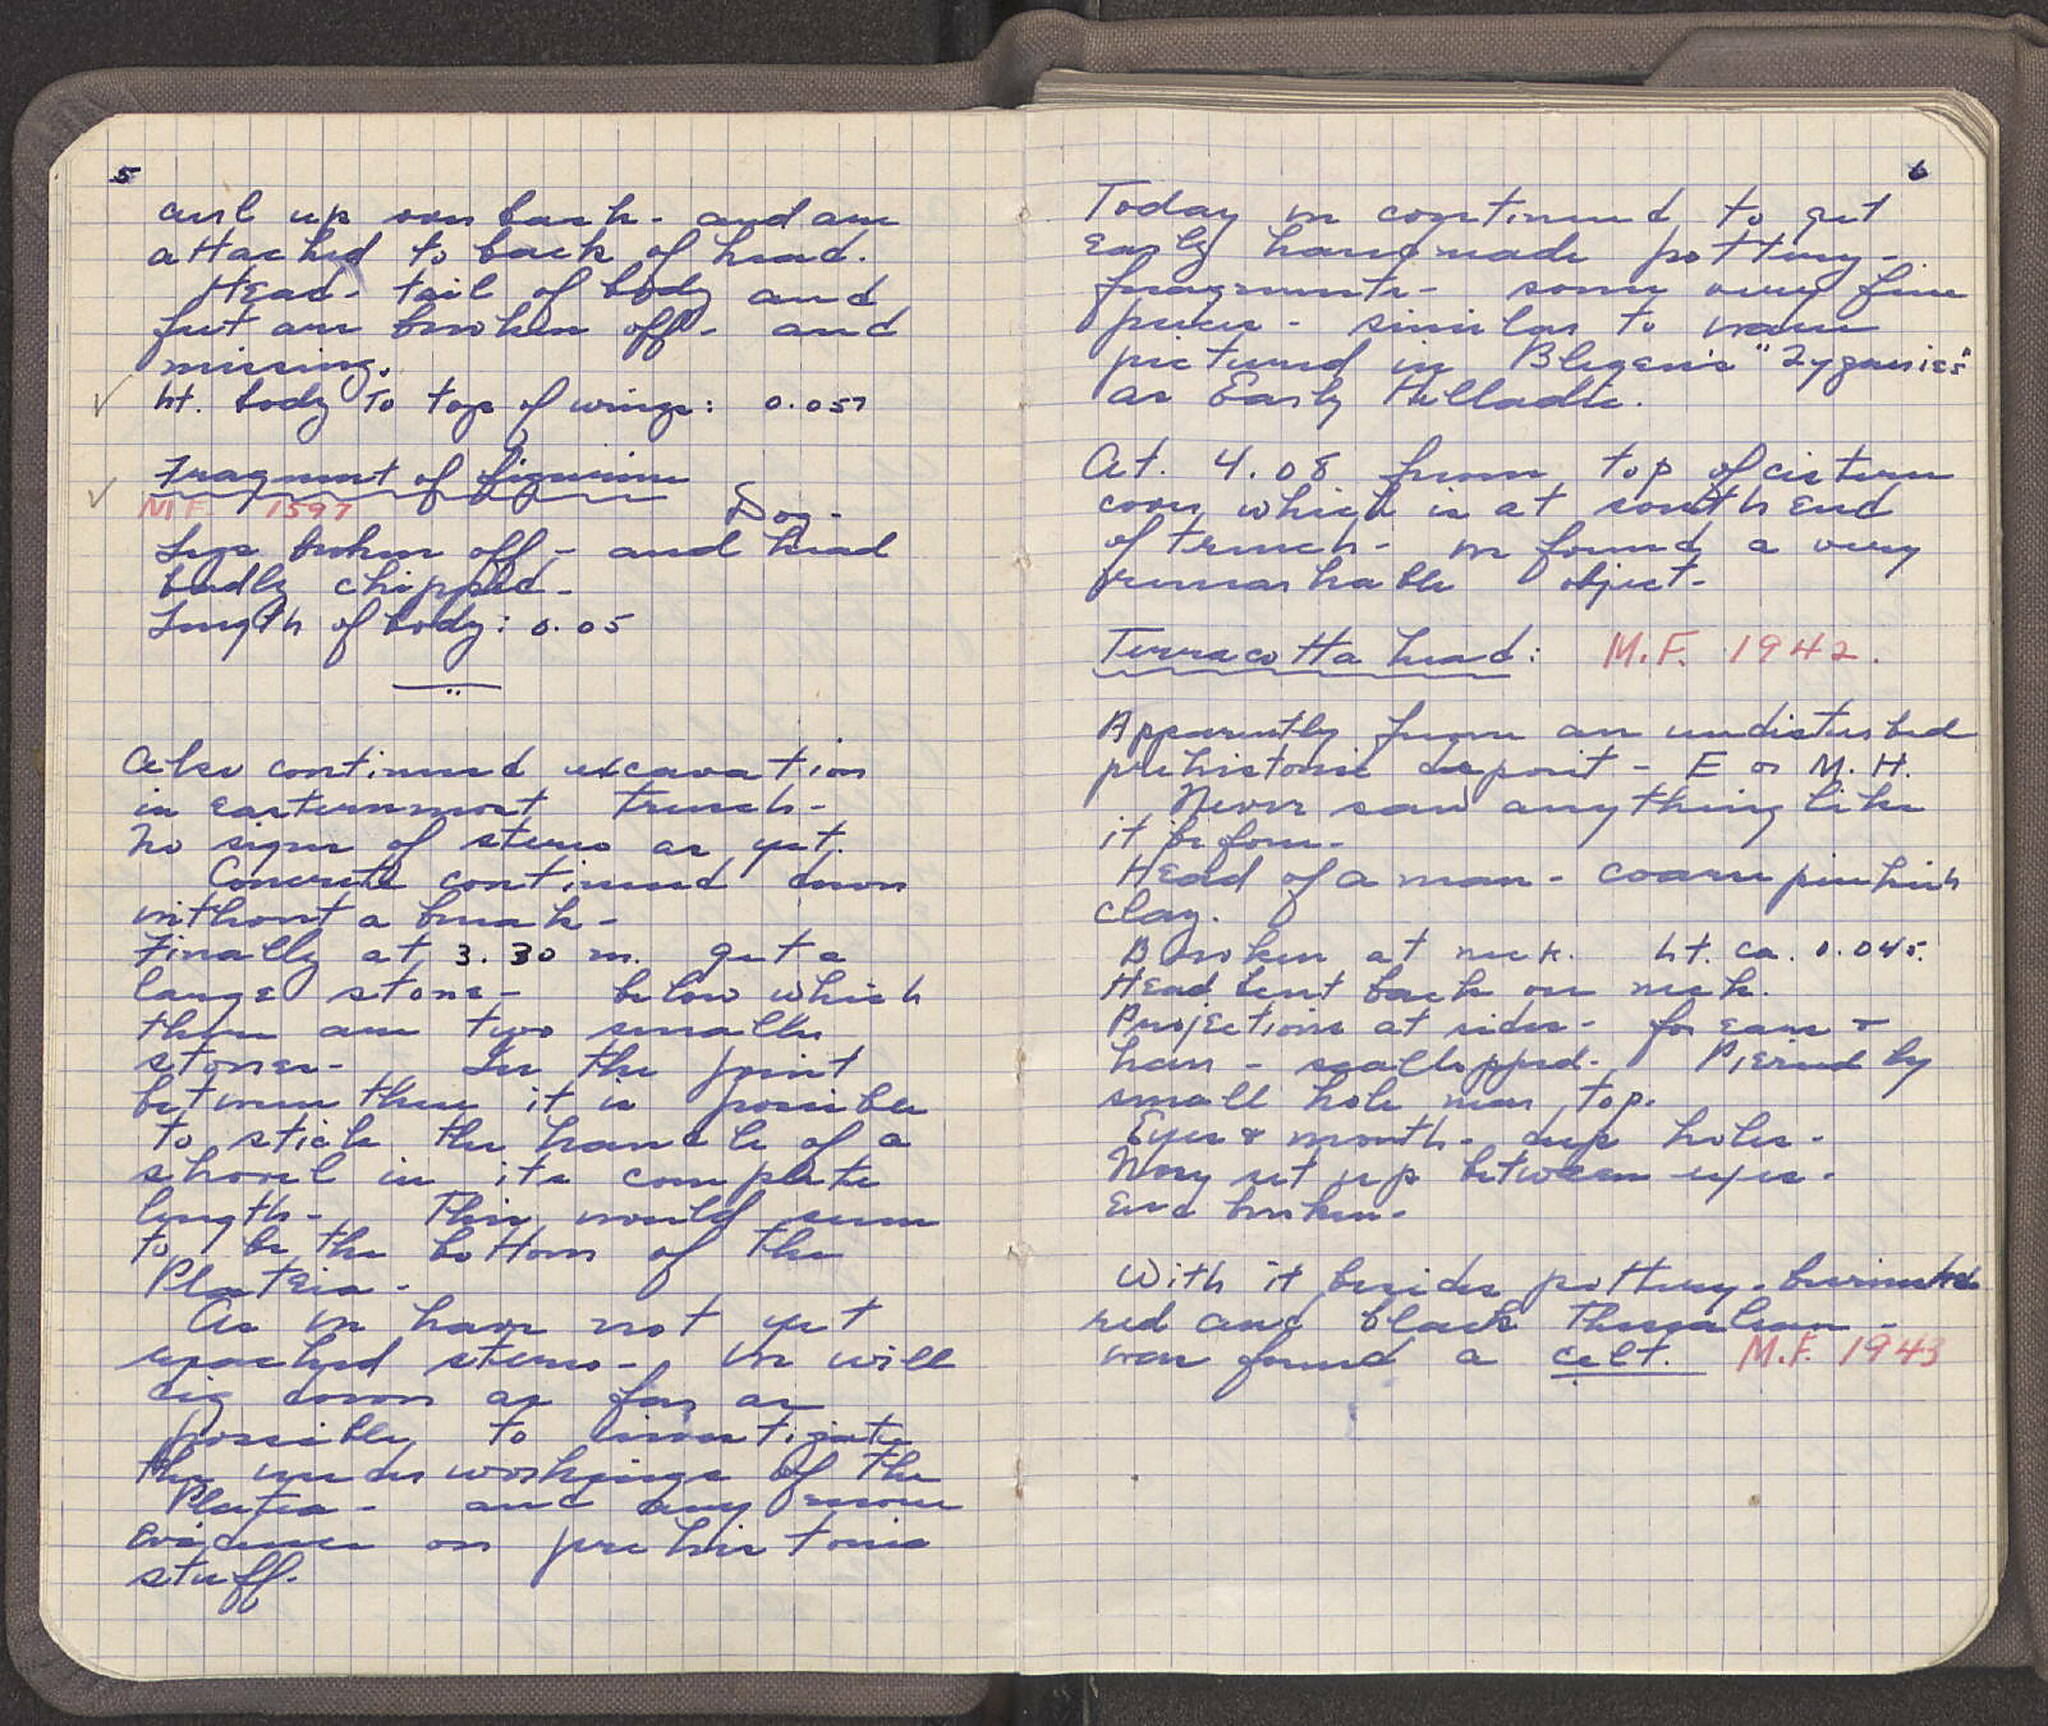 5
curl up over back - and are
attached to back of head.
Head - tail of body and
feet are broken off - and
missing.
✓ ht. body to top of wings: 0.057
Fragment of figurine
✓ M F 1597 Dog -
Legs broken off - and head
badly chipped -
Length of body: 0.05
Also continued excavation
in easternmost trench -
No signs of stereo as yet.
Concrete continued down
without a break -
Finally at 3.30 m. get a
large stone - below which
there are two smaller
stones - In the joint
between these it is possible
to stick the handle of a
shovel in its complete
length - This would seem
to be the bottom of the
Plateia -
As we have not yet
reached stereo - we will
dig down as far as
possible to investigate
the under workings of the
Plateia - and any more
evidence on prehistoric
stuff.
6
Today we continued to get
early handmade pottery -
fragments - some very fine
pieces - similar to ware
pictured in Blegen's "Zygouries"
as Early Helladic.
At. 4.08 from top of cistern
cover which is at south end
of trench - we found a very
remarkable object -
Terracotta head: M.F. 1942.
Apparently from an undisturbed
prehistoric deposit - E or M.H.
Never saw anything like
it before -
Head of a man - coarse pinkish
clay.
Broken at neck. ht. ca. 0.045.
Head bent back on neck.
Projections at sides - for ears +
hair - scallopped - Pierced by
small hole near top.
Eyes & mouth - deep holes -
Nose set up between eyes -
End broken -
With it besides pottery - burnished
red and black Thessalian -
was found a celt. M.F. 1943